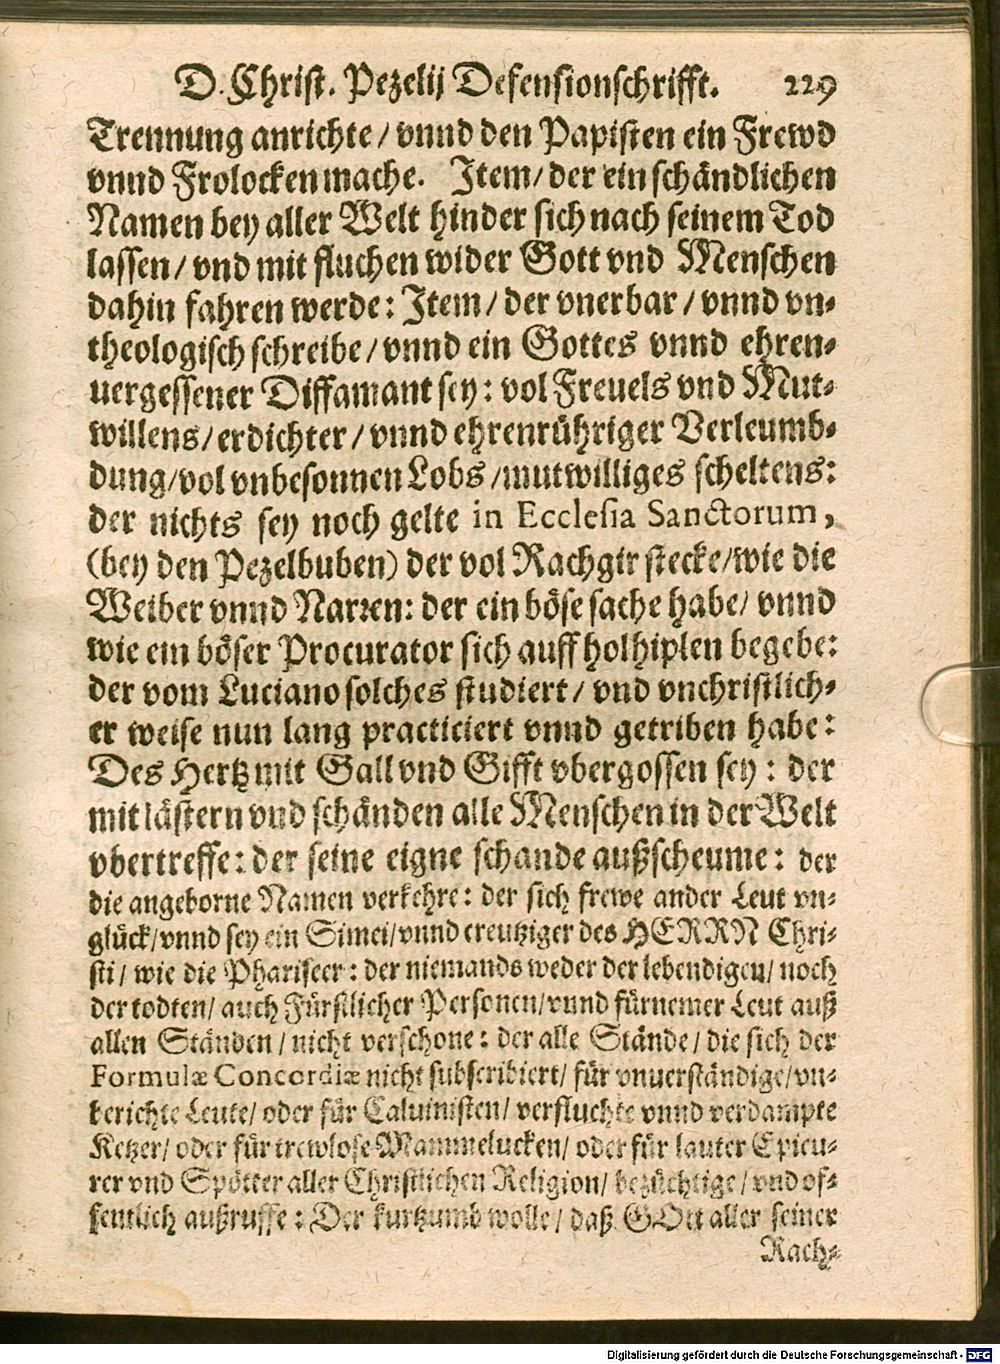 D. Christ. Pezelij Defensionschrifft. 229
Trennung anrichte / vnnd den Papisten ein Frewd
vnnd Frolocken mache. Item / der ein schändlichen
Namen bey aller Welt hinder sich nach seinem Tod
lassen / vnd mit fluchen wider Gott vnd Menschen
dahin fahren werde: Item / der vnerbar / vnnd vn-
theologisch schreibe / vnnd ein Gottes vnnd ehren-
uergessener Diffamant sey: vol Freuels vnd Mut-
willens / erdichter / vnnd ehrenrühriger Verleumb-
dung / vol vnbesonnen Lobs / mutwilliges scheltens:
der nichts sey noch gelte in Ecclesia Sanctorum,
(bey den Pezelbuben) der vol Rachgir stecke / wie die
Weiber vnnd Narren: der ein böse sache habe / vnnd
wie ein böser Procurator sich auff holhiplen begebe:
der vom Luciano solches studiert / vnd vnchristlich-
er weise nun lang practiciert vnnd getriben habe:
Des Hertz mit Gall vnd Gifft vbergossen sey: der
mit lästern vnd schänden alle Menschen in der Welt
vbertreffe: der seine eigne schande außscheume: der
die angeborne Namen verkehre: der sich frewe ander Leut vn-
glück / vnnd sey ein Simei / vnnd creutziger des HERRN Chri-
sti / wie die Phariseer: der niemands weder der lebendigen / noch
der todten / auch Fürstlicher Personen / vnnd fürnemer Leut auß
allen Ständen / nicht verschone: der alle Stände / die sich der
Formulæ Concordiæ nicht subscribiert / für vnuerständige / vn-
berichte Leute / oder für Caluinisten / verfluchte vnnd verdampte
Ketzer / oder für trewlose Mammelucken / oder für lauter Epicu-
rer vnd Spötter aller Christlichen Religion / bezüchtige / vnd of-
fentlich außruffe: Der kurtzumb wolle / daß GOtt aller seiner
Rach-
Digitalisierung gefördert durch die Deutsche Forschungsgemeinschaft - DFG